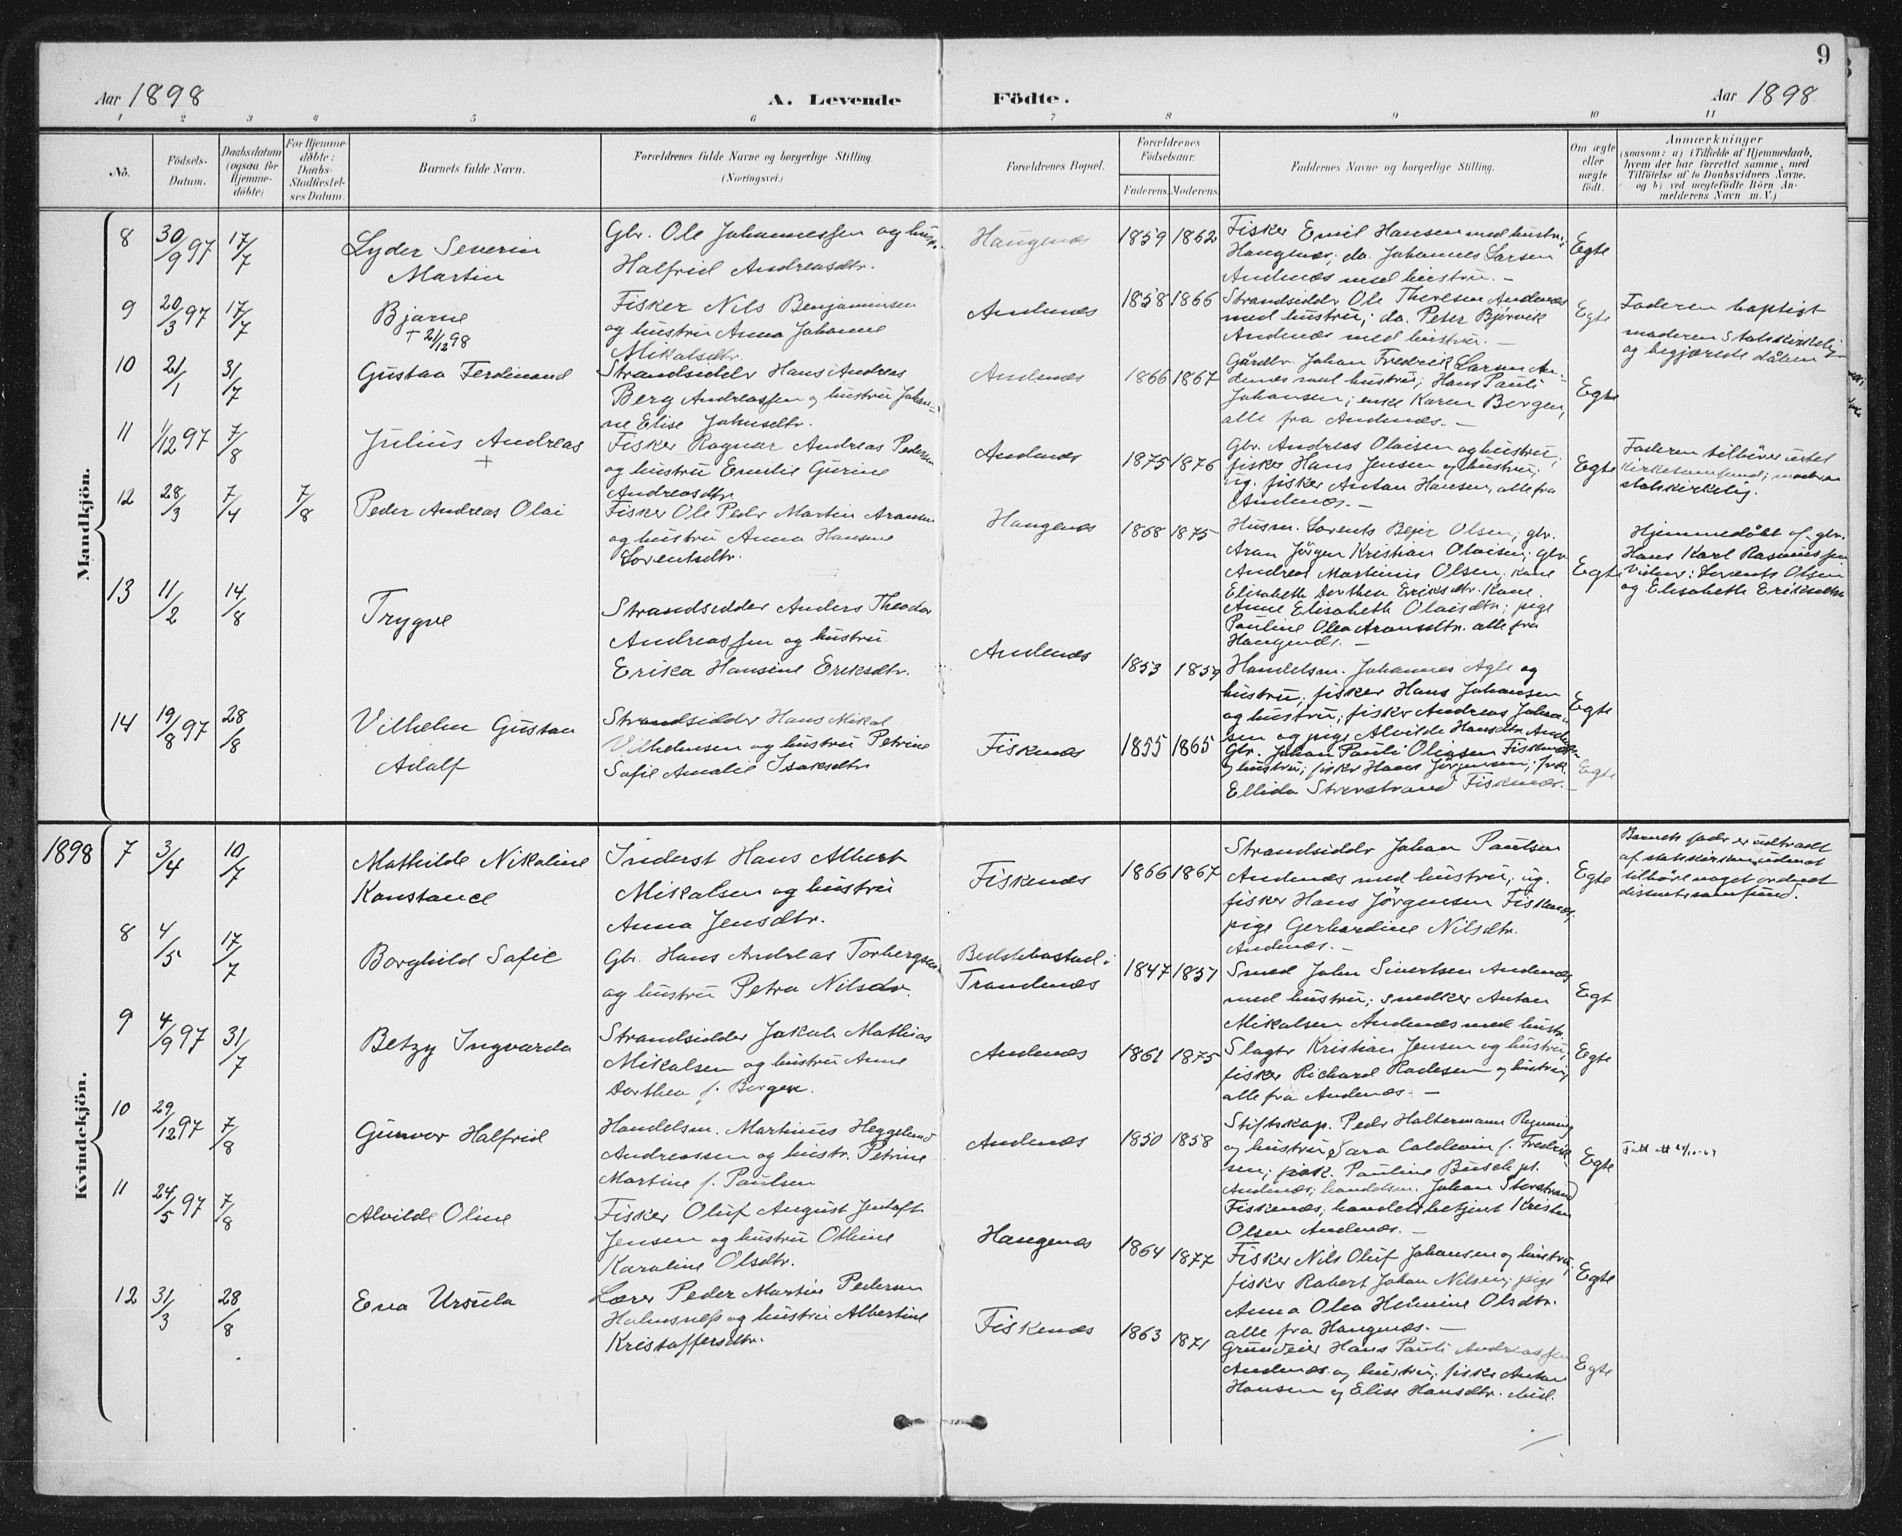 9
Aar 1898 A. Levende Födte. Aar 1898
1 2 3 4 5 6 7 8 9 10 11
No.
Födsels-Datum.
Daabsdatum (ogsaa for Hjemmedöbte)
For Hjemmedöbte: Daabs-Stadfæstelses Datum.
Barnets fulde Navn.
Forældrenes fulde Navne og borgerlige Stilling.
(Næringsvei.)
Forældrenes Bopæl.
Forældrenes Födselsaar.
Faderens. Moderens.
Faddernes Navne og borgerlige Stilling.
Om ægte eller uægte födt.
Anmærkninger
(saasom: a) i Tilfælde af Hjemmedaab,
hvem der har forrettet samme, med
Tilföielse af to Daabsvidners Navne.
og b) ved uægtefödte Börn An-
melderens Navn m. V.)
Mandkjön.
8 30/9 97 17/7
Lyder Severin
Martin
Gbr. Ole Johannessen og hustr.
Halfrid Andreasdtr.
Haugenæs 1859 1862
Fisker Emil Hansen med hustru,
Haugenæs; do. Johannes Larsen
Andenæs med hustru. –
Egte
9 20/3 97 17/7
Bjarne
+ 21/12 98
Fisker Nils Benjaminsen
og hustru Anna Johanne
Mikalsdtr.
Andenæs 1858 1866
Strandsidder Ole Theresen Andenæs
med hustru; do. Peter Bjørvik
Andenæs med hustru. –
Egte
Faderen baptist
moderen Statskirkelig
og begjærede dåben
10 21/1 31/7
Gustav Ferdinand
Strandsidder Hans Andreas
Berg Andreassen og hustru Johan-
ne Elise Johnsdtr.
Andenæs 1866 1867
Gårdbr. Johan Fredrik Larsen An-
denæs med hustru; Hans Pauli
Johansen; enke Karen Borgen,
alle fra Andenæs. –
Egte
11 1/12 97 7/8
Julius Andreas
+
Fisker Ragnar Andreas Pedersen
og hustru Emilie Gurine
Andreasdtr.
Andenæs 1875 1876
Gbr. Andreas Olaisen og hustru;
fisker Hans Jensen og hustru;
ug. fisker Anton Hansen, alle fra
Andenæs. –
Egte
Faderen tilhører intet
kirkesamfund; moderen
statskirkelig.
12 28/3 7/4 7/8
Peder Andreas Olai
Fisker Ole Pedr Martin Aronsen
og hustru Anna Hansine
Lorentsdtr.
Haugenæs 1868 1875
Husm. Lorents Bejer Olsen, gbr.
Aron Jörgen Kristian Olaisen; gbr
Andreas Martinus Olsen, kone
Elisabeth Dorthea Eriksdtr. Kone.
Anne Elisabeth Olaisdtr; pige
Pauline Olea Aronsdtr. alle fra
Haugenæs. –
Egte
Hjemmedøbt af gbr.
Hans Karl Rasmussen
Vidner: Lorents Olsen
og Elisabeth Eriksdtr
13 11/2 14/8
Trygve
Strandsidder Anders Theodor
Andreassen og hustru
Erika Hansine Eriksdtr.
Andenæs 1853 1859
Handelsm. Johannes Agle og
hustru; fisker Hans Johansen
og hustru; fisker Andreas Johan-
sen og pige Alvilde Hansdtr Andenæs
Egte
14 19/8 97 28/8
Vilhelm Gustav
Adolf
Strandsidder Hans Mikal
Vilhelmsen og hustru Petrine
Sofie Amalie Isaksdtr
Fiskenæs 1855 1865
Gbr. Johan Pauli Olsen Fiskenæs
og hustru; fisker Hans Jörgensen; frk.
Ellida Storstrand Fiskenæs. –
Egte
Kvindekjön.
1898 7 3/4 10/7
Mathilde Nikoline
Konstance
Inderst Hans Albert
Mikalsen og hustru
Anna Jensdtr.
Fiskenæs 1866 1867
Strandsidder Johan Paulsen
Andenæs med hustru; ug.
fisker Hans Jørgensen Fiskenæs,
pige Gerhardine Nilsdtr.
Andenæs. –
Egte
Barnets fader er udtraadt
af statskirken uden at
tilhøre noget ordnet
dissentersamfund.
8 4/5 17/7
Borghild Sofie
Gbr. Hans Andreas Torbergsen
og hustru Petra Nilsdtr.
Trandenæs 1847 1857
Smed John Sivertsen Andenæs
med hustru; snedker Anton
Mikalsen Andenæs med hustr.
Egt
9 4/9 97 31/7
Betzy Ingvarda
Strandsidder Jakob Mathias
Mikalsen og hustru Anne
Dorthea f. Borgen.
Andenæs 1861 1875
Slagter Kristian Jensen og hustru;
fisker Richard Radesen og hustru;
alle fra Andenæs. –
Egte
10 29/12 97 7/8
Gunvor Halfrid
Handelsm. Martinus Heggelund
Andreassen og hustr. Petrine
Martine f. Paulsen
Andenæs 1850 1858
Stiftskap. Peder Holtermann Rynning
og hustru Sara Caldevin f. Fredrik-
sen; frøk. Pauline Busch pt.
Andenæs; handelsm. Johan Storstrand
Fiskenæs; handelsbetjent Kristen
Olsen Andenæs. –
Egte
11 24/5 97 7/8
Alvilde Oline
Fisker Oluf August Jentoft
Jensen og hustru Othine
Karoline Olsdtr.
Haugenæs 1864 1877
Fisker Nils Oluf Johansen og hustru;
fisker Robert Johan Nilsen; pige
Anna Olea Helmine Olsdtr.
alle fra Haugenæs. –
Egte
12 31/3 28/8
Eva Ursula
Lærer Peder Martin Pedersen
Holmsnæs og hustru Albertine
Kristoffersdtr.
Fiskenæs 1863 1871
Grundeier Hans Pauli Andreassen
Andenæs og hustru; fisker Anton
Hansen og Elise Hansdtr. ibid.
Egte